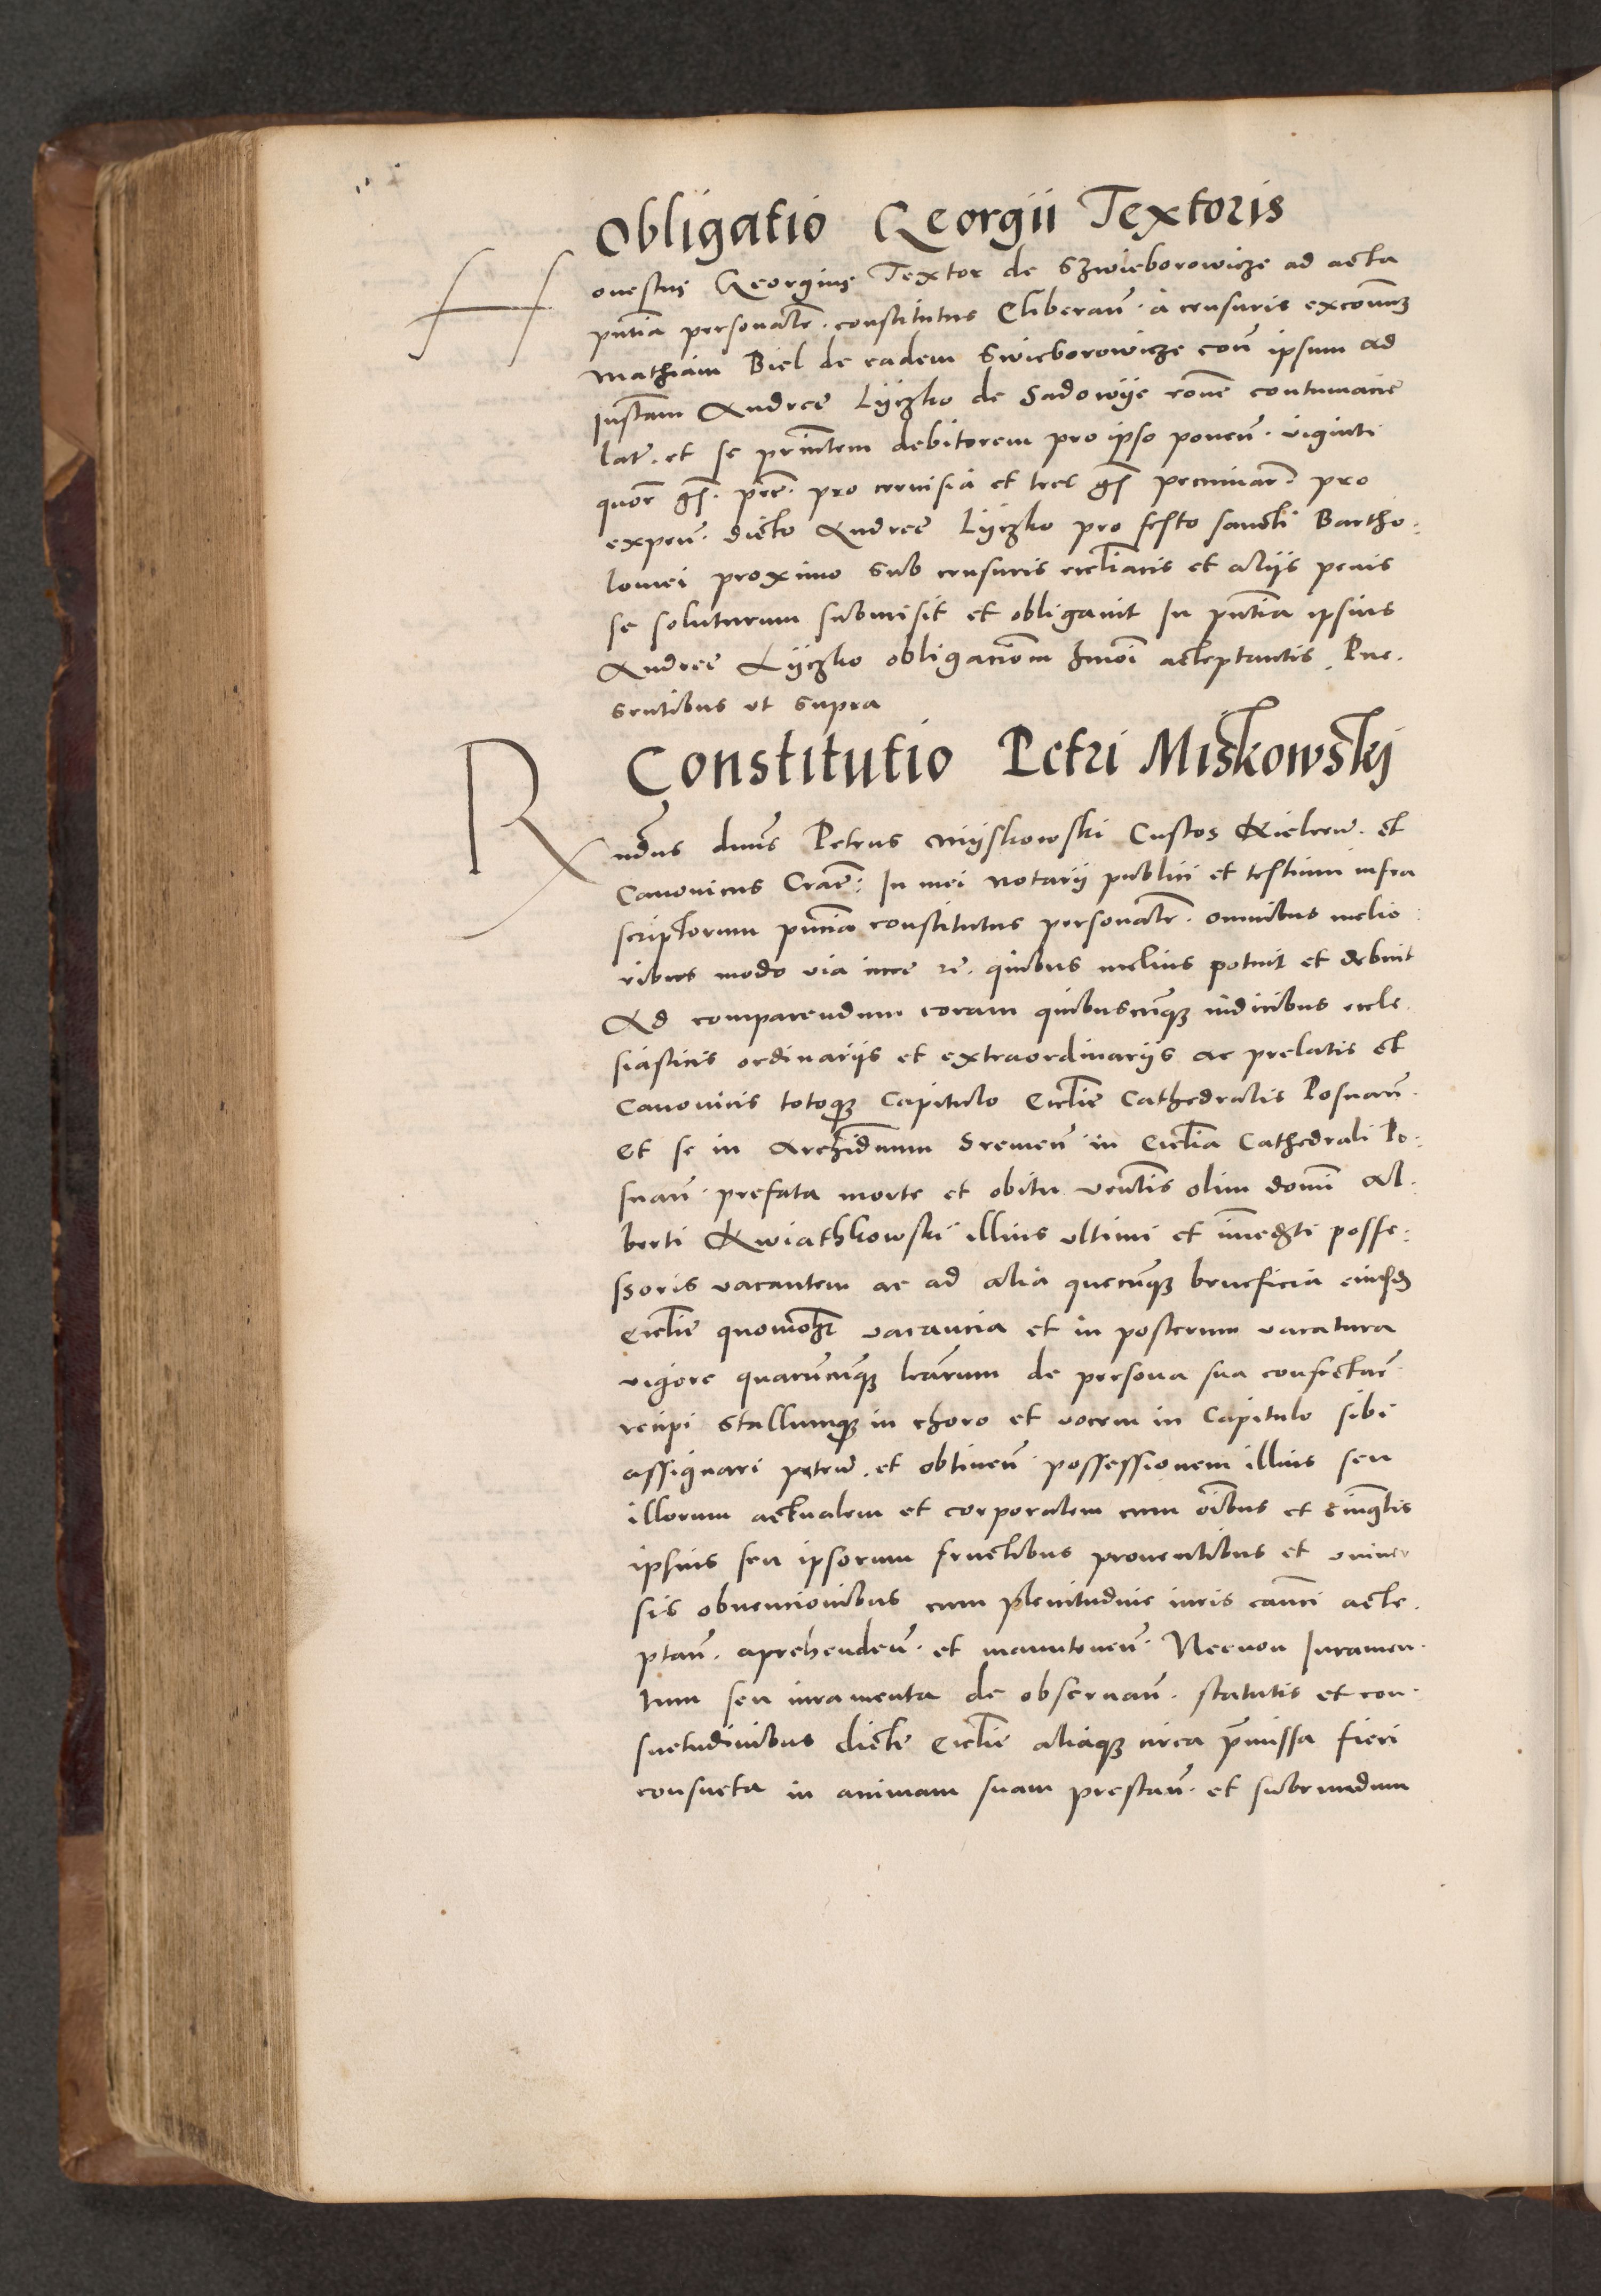 Obligatio Georgii Textoris
Honestus Georgius Textor de Szwieborowicze ad acta
pntia personalr. constitutus Eliberan. a censuris excom
Mathiam Biel de eadem Swieborowicze con ipsum ad
Instam Andree Lyczko de Sadowye rone contumacie
lat. et se printem debitorem pro ipso ponen. viginti
quor gs. pre. pro cervisia et tres gs pecuniar. pro
expen. dicto Andree Lyczko pro festo sancti Bartho:
lomei proximo sub censuris ecctiacis et aliis penis
se soluturum submisit et obligavit In pntia ipsius
Andree Lyczko obligacionem hmoi acceptantis. Pre.
sentibus ut supra
Constitutio Petri Miskowskj
Rndus dnus Petrus Myskowski Custos Kielcen. et
Canonicus Crac: In mei notarij publici et testium infra
scriptorum pncia constitutus personalr. omnibus melio:
ribus modo via iure re. quibus melius potuit et debuit
Ad comparendum coram quibuscunq iudicibus eccle.
siasticis ordinarijs et extraordinarijs ac prelatis et
Canonicis totoq Capitulo Ecclie Cathedralis Posnan.
et se in Archidnum Sremen in Ecclia Cathedrali Po:
snan. prefata morte et obitu venlis olim domi Al:
berti Kwiathkowski illius ultimi et immedti posse:
ssoris vacantem ac ad alia quecunq beneficia eiusd
Ecclie quomolt vacancia et in posterum vacatura
vigore quarumcunq lrarum de persona sua confectar.
recipi Stallumq in choro et vocem in Capitulo sibi
assignari peten. et obtinen. possessionem illius seu
illorum actualem et corporalem cum oibus et singlis
ipsius seu ipsorum fructibus proventibus et univer
sis obvencionibus cum plenitudine iuris canci acce.
ptan. aprehenden. et manutenen. Necnon Iuramen.
tum seu iuramenta de observan. statutis et con.
suetudinibus dicte Ecclie aliaq circa pmissa fieri
consueta in animam suam prestan. et subeundum